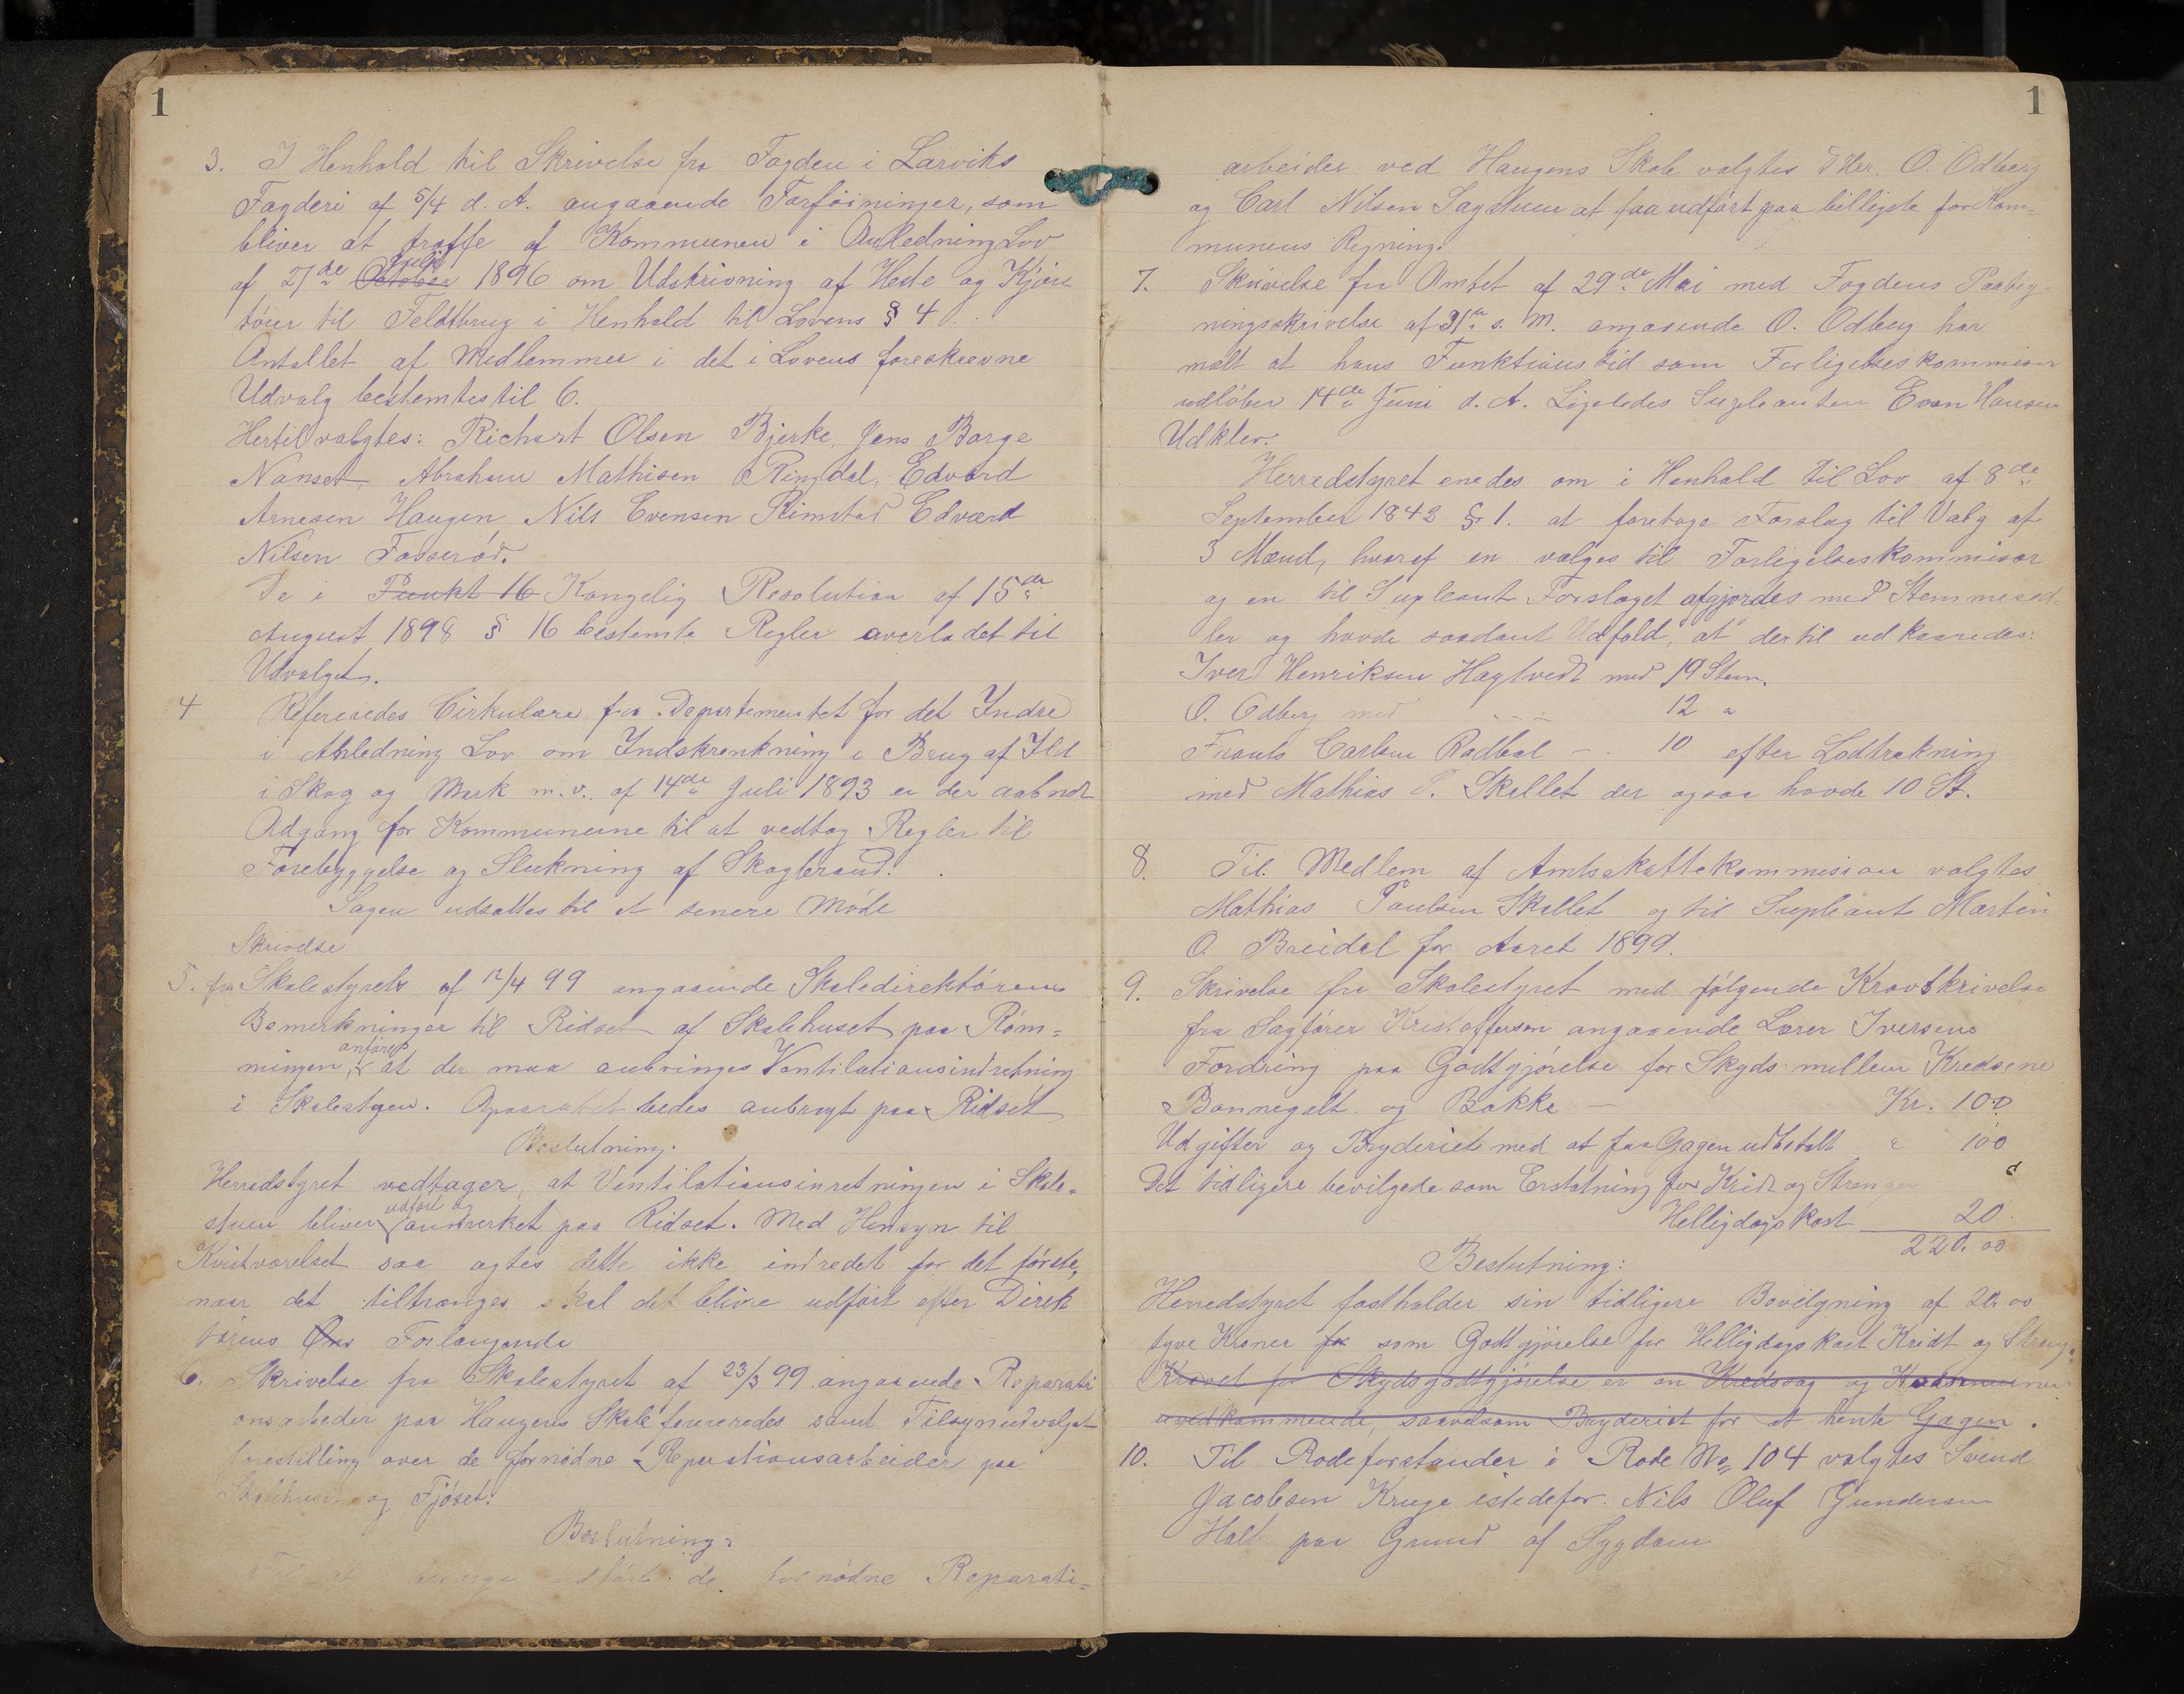 1
3. I Henhold til Skrivelse fra Fogden i Larviks
Fogderi af 5/4 d. A. angaaende Forföininger, som
bliver at træffe af Kommunen i Anledning Lov
af 27de October Juli 1896 om Udskrivning af Heste og Kjöre
töier til Feldtbrug i Henhold til Lovens § 4.
Antallet af Medlemmer i det i Lovens foreskrevne
Udvalg bestemtes til 6.
Hertil valgtes: Richart Olsen Bjerke, Jens Borge
Nanset, Abraham Mathisen Ringdal, Edvard
Arnesen Haugen, Nils Evensen Rimstad Edvard
Nilsen Fosserød.
De i Punkt 16 Kongelig Resolution af 15de
August 1898 § 16 bestemte Regler overlodet til
Udvalget.
4 Refereredes Cirkulære fra Departementet for det Indre
i Anledning Lov om Indskrænkning i Brug af Ild
i Skog og Mark m. v. af 14de Juli 1893 er der aabnet
Adgang for Kommunerne til at vedtag Regler til
Forebyggelse og Slukning af Skogbrand.
Sagen udsattes til et senere Möde
Skrivelse
5. fra Skolestyrets af 12/4 99 angaaende Skoledirektörens
Bemerkninger til Ridset af Skolehuset paa Röm=
ningen, anföres at der maa anbringes Ventilationsindretning
i Skolestuen. Aparatet bedes anbragt paa Ridset
Beslutning.
Herredstyret vedtager, at Ventilationsinretningen i Skole=
stuen bliver udfört og anmerket paa Ridset. Med Hensyn til
Kvistværelset saa agtes dette ikke indredet for det förste,
naar det tiltrænges skal det blive udfört efter Direk
törens Öns Forlangende
6. Skrivelse fra Skolestyret af 23/3 99 angaaende Reparati
onsarbeder paa Haugens Skole samt Tilsynudvalget
forestilling over de fornödne Reparationsarbeider paa
Skolehuset og Fjöset.
Beslutning.
at udfört de fornödne Reparati=
1
arbeider ved Haugens Skole valgtes D'Hrr. O. Odberg
og Carl Nilsen Sagstuen at faa udfört paa billigste for Kom=
munens Regning.
7. Skrivelse fra Amtet af 29de Mai med Fogdens Paateg=
ningsskrivelse af 31te s. M. angaaende O. Odberg har
mælt at hans Funktionstid som Forligelseskommisær
udlöber 14de Juni d. A. Ligeledes Supleanten Even Hansen
Udklev.
Herredstyret enedes om i Henhold til Lov af 8de
September 1842 § 1. at foretage Forslag til Valg af
3 Mænd, hvoraf en vælges til Forligelseskommisær
og en til Supleant Forslaget afgjordes med Stemmesed=
ler og havde saadant Udfald, at dertil udkaaredes:
Iver Henriksen Hagtvedt med 19 Stem.
O. Odberg med - - - 12 "
Frants Carlsen Rødbøl - - 10 efter Lodtrækning
med Mathias P. Skallet der ogsaa havde 10 St.
8. Til Medlem af Amtsskattekommision valgtes
Mathias Paulsen Skallet og til Supleant Martin
O. Breidal for Aaret 1899.
9. Skrivelse fra Skolestyret med fölgende Kravskrivelse
fra Sagförer Kristoffersen angaaende Lærer Iversens
Fordring paa Godtgjörelse for Skyds mellem Kredsene
Bonnegalt og Bakke — Kr. 100
Udgifter og Bryderiet med at faa Gagen udbetalt " 100
Det tidligere bevilgede som Erstatning for Kridt og Strenger
Helligdagskost 20
220.00
Beslutning:
Herredstyret fastholder sin tidligere Bevilgning af 20.00
tyve Kroner for som Godtgjörelse for Helligdagskost Kridt og Streng.
Kravet for Skydsgodtgjörelse er en Kredssag og
uvedkommende, saavelsom Bryderiet for at hente Gagen.
10. Til Rodeforstander i Rode No 104 valgtes Svend
Jacobsen Kruge istedefor Nils Oluf Gundersen
Holt paa Grund af Sygdom